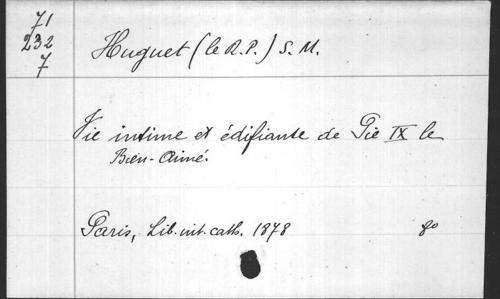 71
232
7
Huguet (le R.P.) S.M.
Vie intime et édifiante de Pie IX le
Bien-Aimé.
Paris, Lib. int. cath. 1878 8o